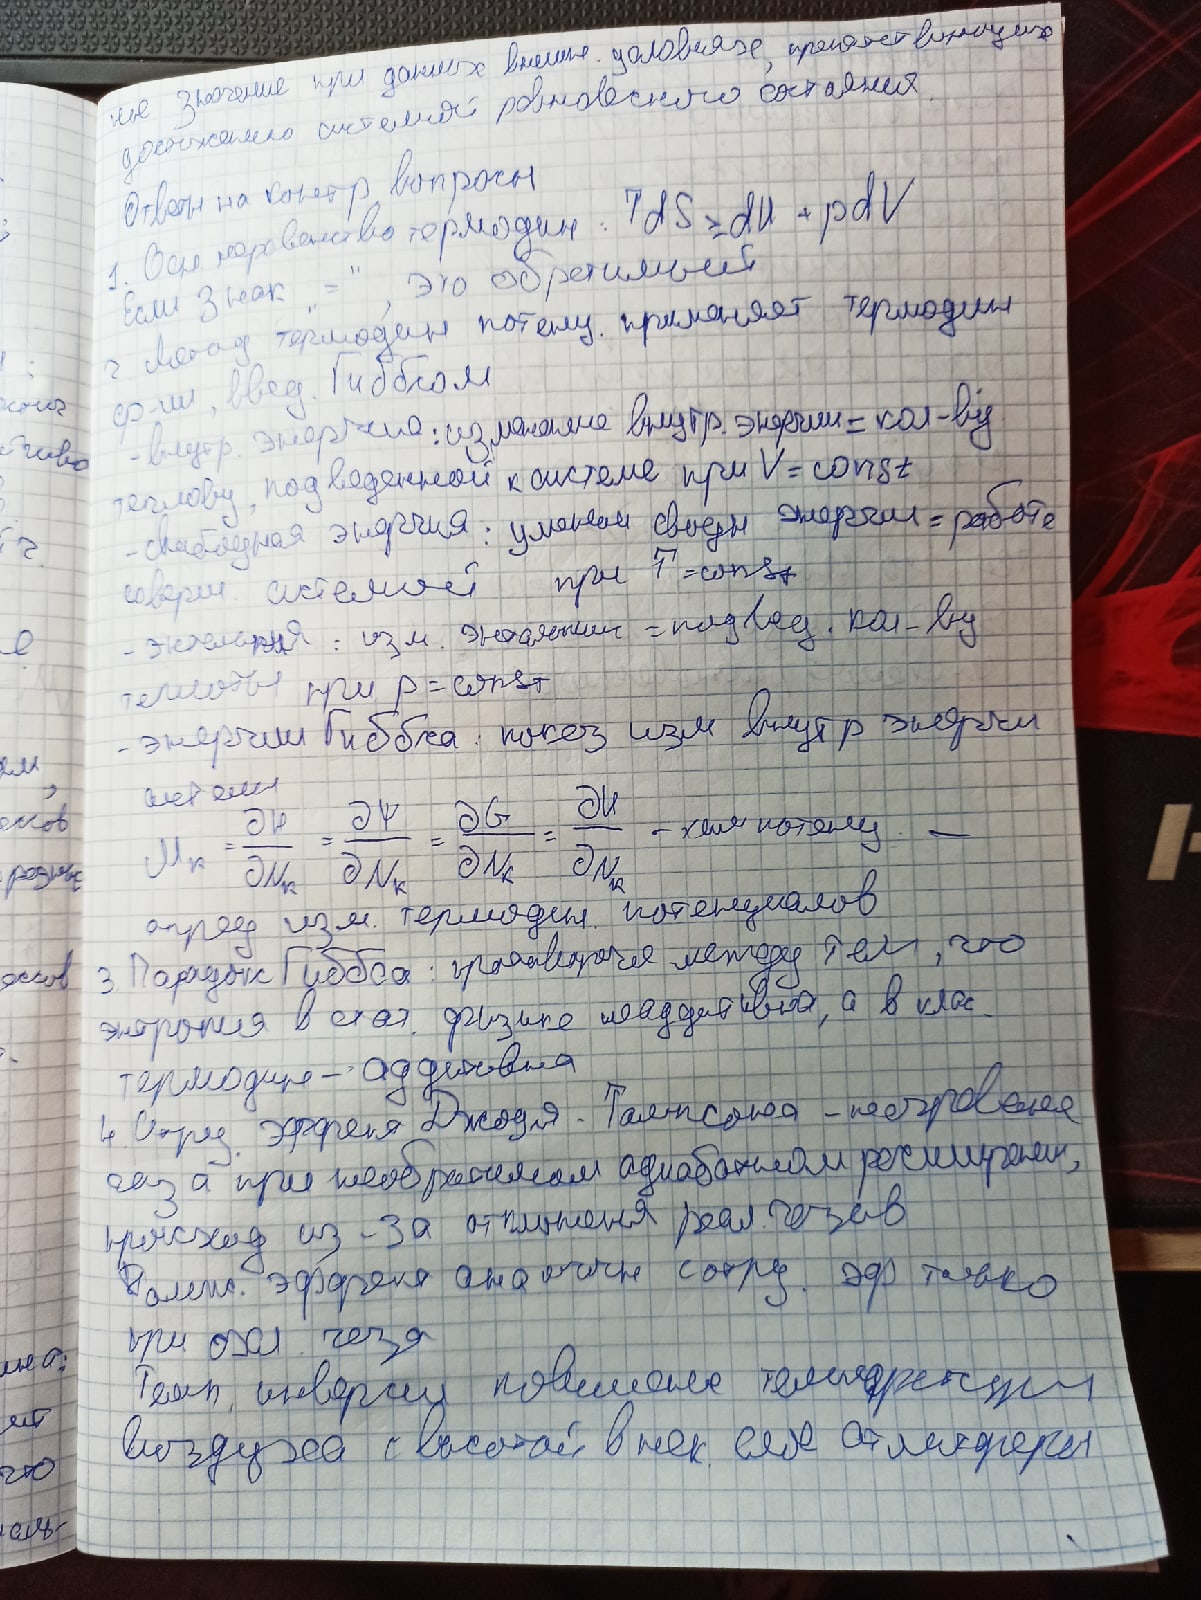 ние значение при данных внешн. условиях, препятствующих
достижению системой равновесного состояния.
Ответы на контр вопросы
1. Осн. неравенство термодин: TdS ≥ dU + pdV
Если знак "=", это обратимый
2 Метод термодин потенц. применяет термодин
ф-ии, введ. Гиббсом
- внутр. энергия: изменение внутр. энергии = кол-ву
теплоты, подведенной к системе при V = const
- свободная энергия: уменьш свободн энергии = работе
соверш. системой при T = const
- энтальпия: изм. энтальпии = подвед. кол-ву
теплоты при p = const
- энергии Гиббса: показ изм внутр энергии
системы
Mк = ∂U/∂Nк = ∂Ψ/∂Nк = ∂G/∂Nк = ∂H/∂Nк - хим потенц. —
опред изм. термодин. потенциалов
3 Парадокс Гиббса: противоречие между тем, что
энтропия в стат. физике неаддитивна, а в клас.
термодин - аддитивна
4. Отриц. эффект Джоуля - Томпсона - нагревание
газа при необратимом адиабатном расширении,
происход из-за отклонения реал. газов
Полож. эффект аналогичн отриц. эф только
при охл. газа
Темп. инверсии повышение температуры
воздуха с высотой в нек. слое атмосферы